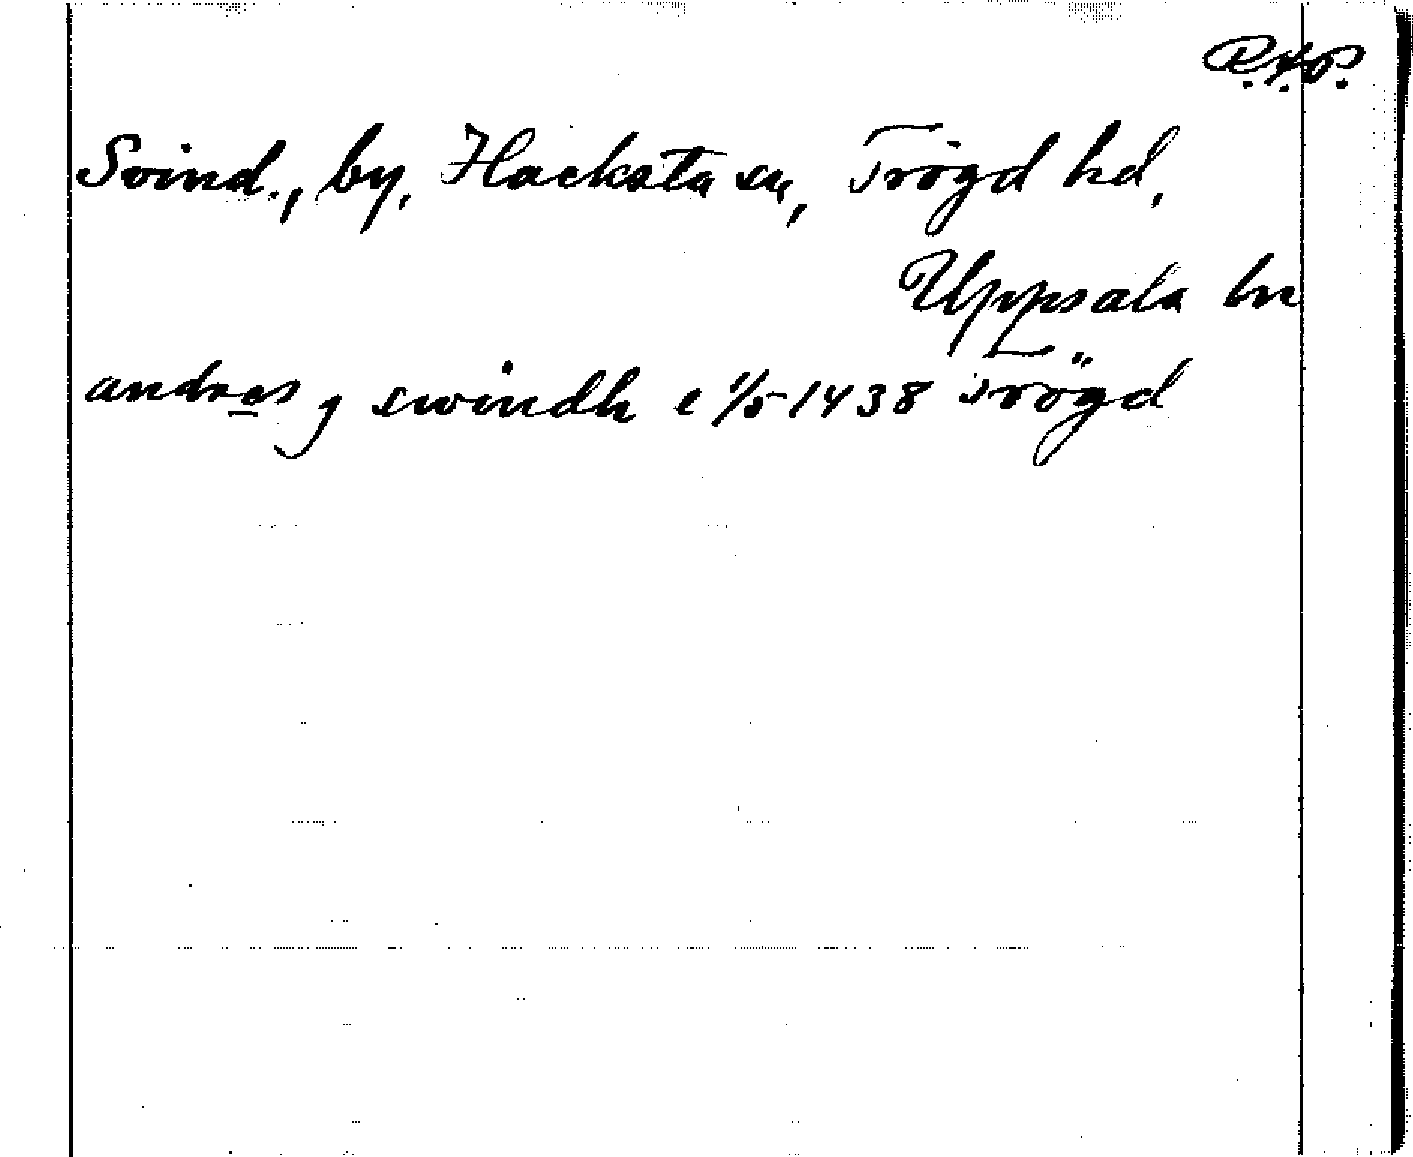 R.A.P.
Svind., by, Hacksta sn, Trögd hd,
Uppsala ln
andres j swindh e 1/5 1438 Trögd